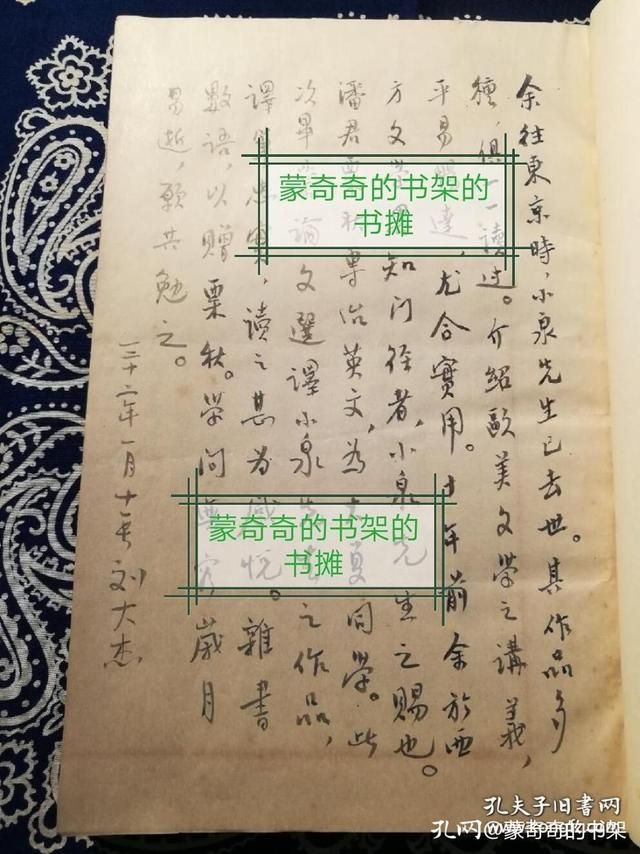 余往東京時，小泉先生已去世。其作品多
種，俱一一讀过。介紹歐美文學之講義，
平易明達，尤合實用。十年前余於西
方文學畧知门徑者，小泉先生之賜也。
潘君栗秋專治英文，為大夏同學。此
次畢業論文選譯小泉先生之作品，
譯筆忠實，讀之甚为感悦。雜書
數語，以贈栗秋。學问無窮歲月
易逝，願共勉之。
三十二年一月十一日刘大杰
蒙奇奇的书架的
书摊
蒙奇奇的书架的
书摊
孔夫子旧书网
孔网@蒙奇奇的书架